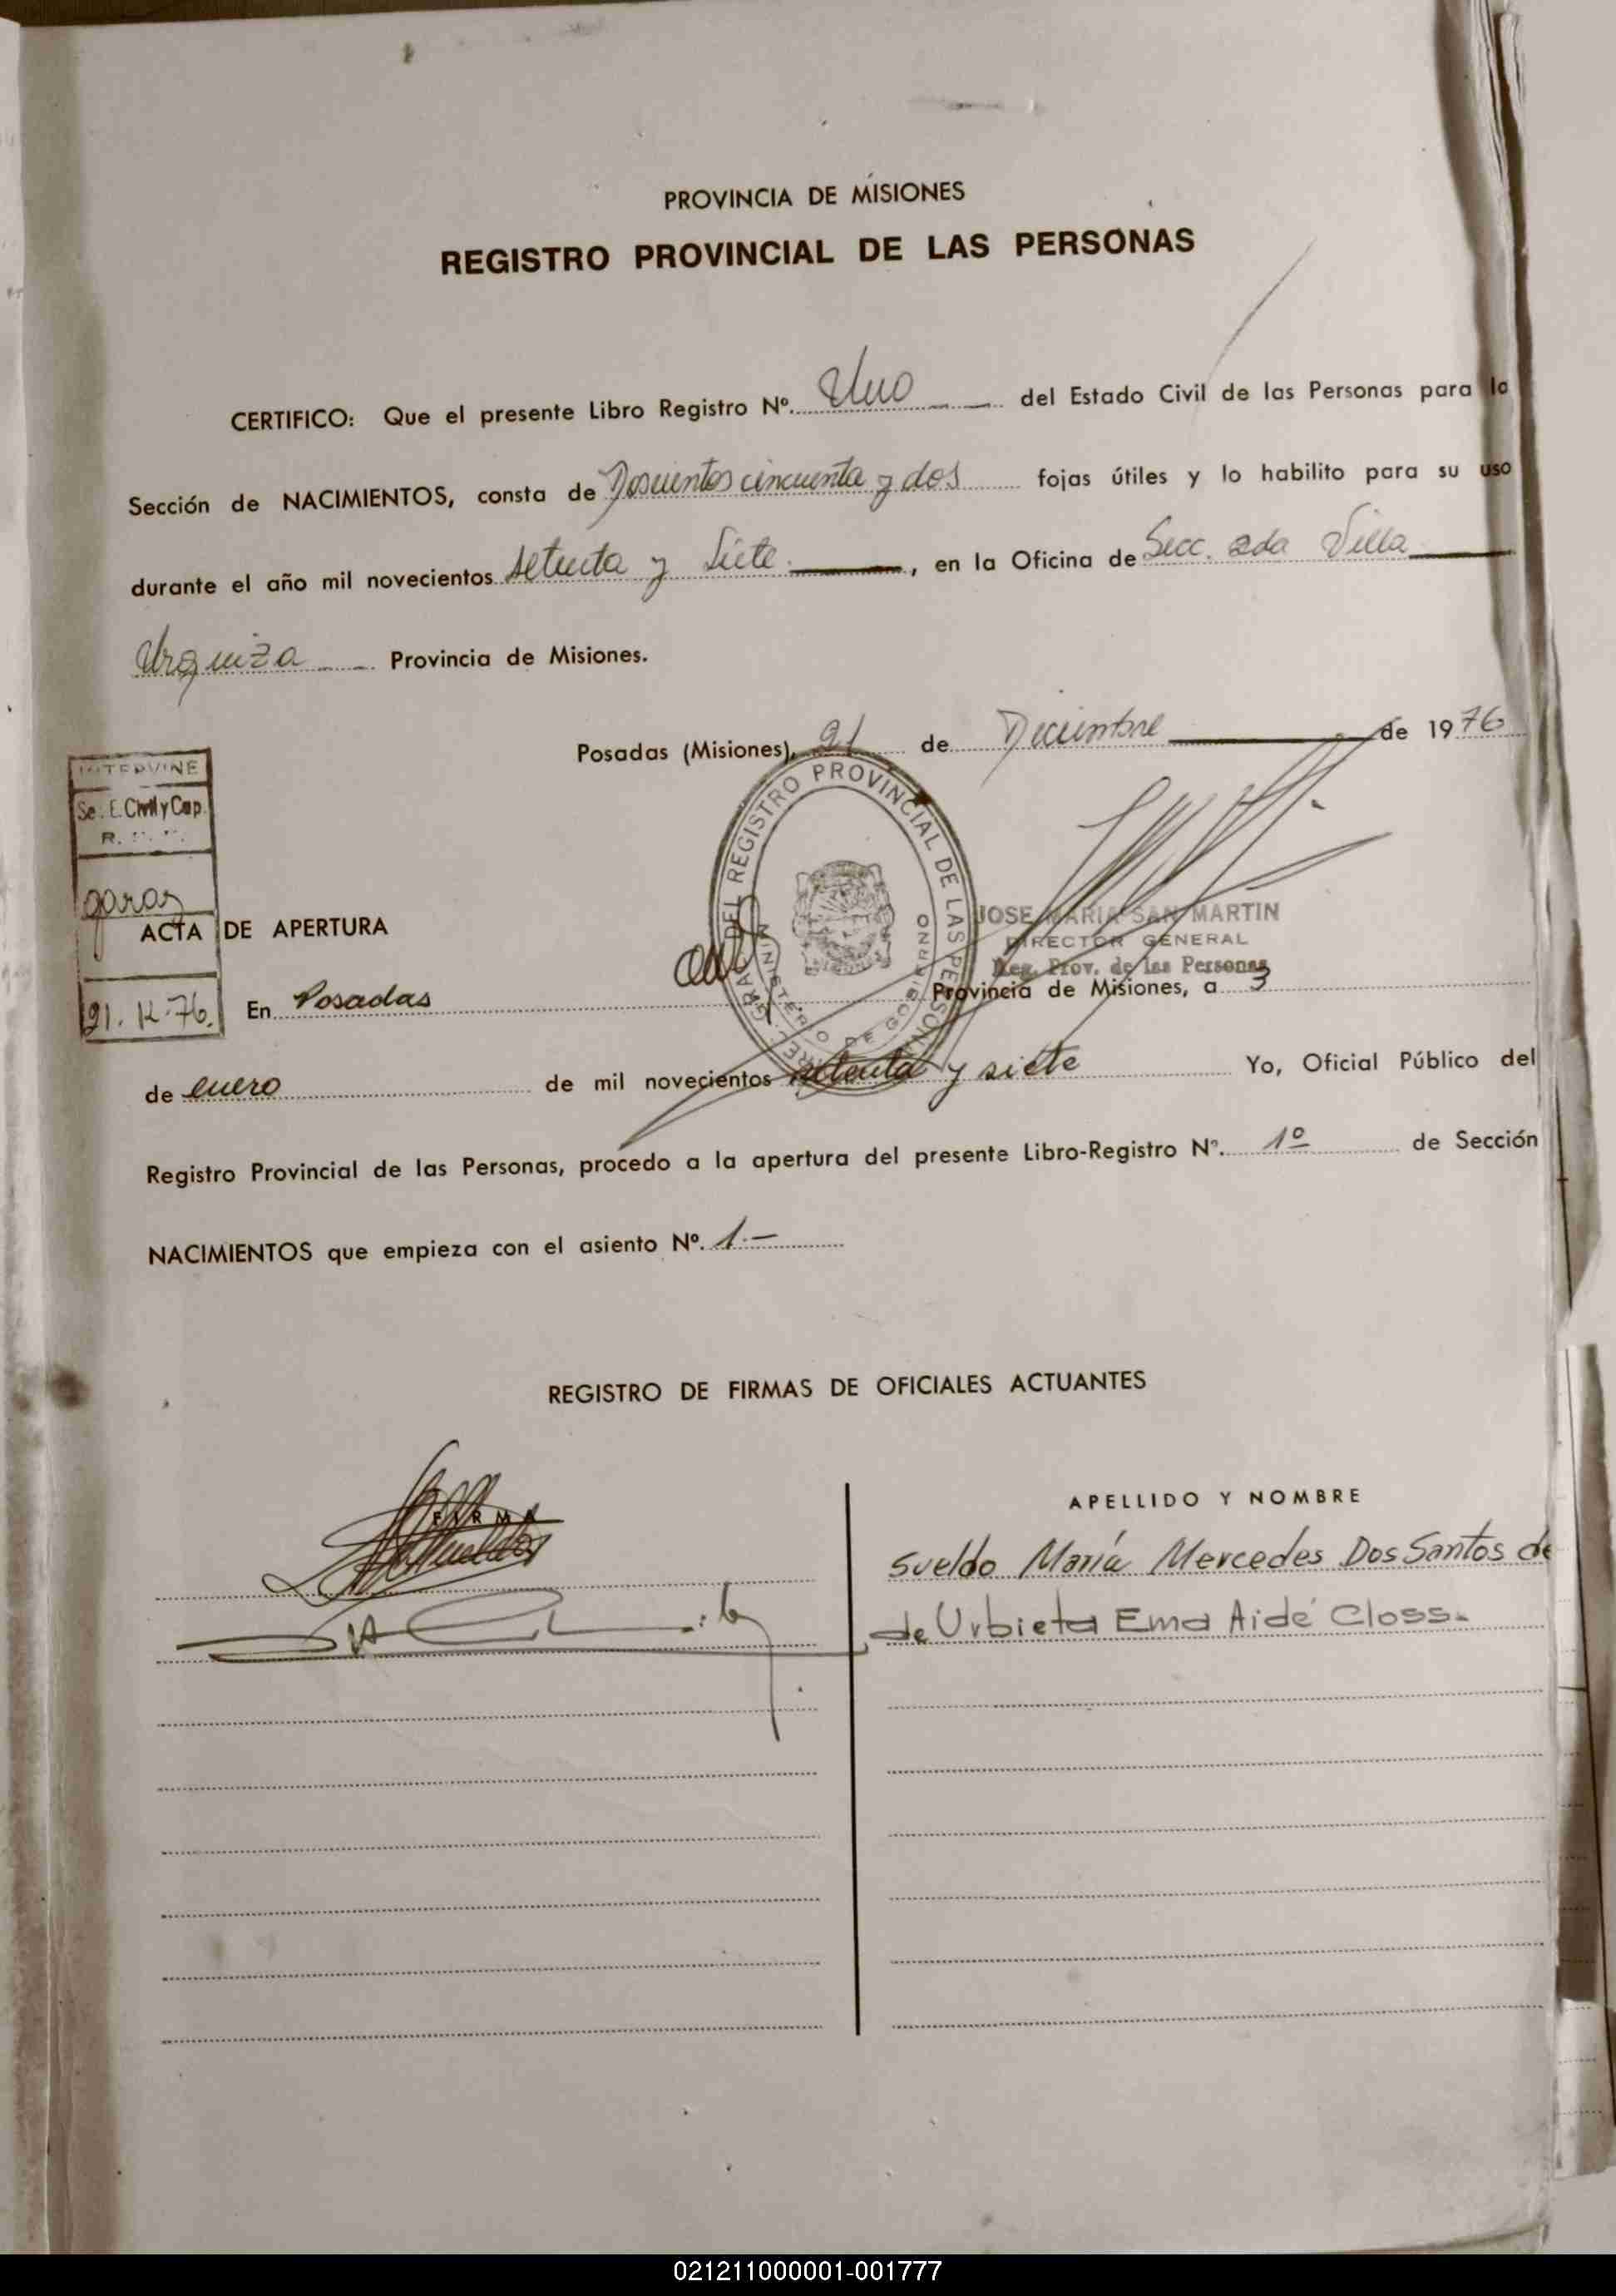 PROVINCIA DE MISIONES
REGISTRO PROVINCIAL DE LAS PERSONAS
CERTIFICO: Que el presente Libro Registro Nº. Uno del Estado Civil de las Personas para la
Sección de NACIMIENTOS, consta de Doscientos cincuenta y dos fojas útiles y lo habilito para su uso
durante el año mil novecientos setenta y siete, en la Oficina de Secc. 2da Villa
Urquiza Provincia de Misiones.
Posadas (Misiones), 21 de Diciembre de 1976
INTERVINE
Se. E. Civil y Cap.
R.
21.12.76.
DEL REGISTRO PROVINCIAL DE LAS PERSONAS
MINISTERIO DE GOBIERNO
JOSE MARIA SAN MARTIN
DIRECTOR GENERAL
Reg. Prov. de las Personas
ACTA DE APERTURA
En Posadas Provincia de Misiones, a 3
de enero de mil novecientos setenta y siete Yo, Oficial Público del
Registro Provincial de las Personas, procedo a la apertura del presente Libro-Registro Nº. 1º de Sección
NACIMIENTOS que empieza con el asiento Nº. 1.-
REGISTRO DE FIRMAS DE OFICIALES ACTUANTES
FIRMA
APELLIDO Y NOMBRE
Sueldo María Mercedes Dos Santos de
de Urbieta Ema Aidé Closs.-
021211000001-001777